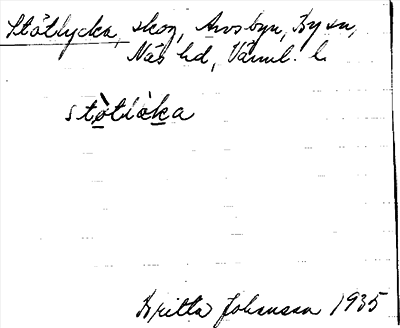 Stötlycka, skog, Avsbyn, By sn,
Näs hd, Värml. l.
stòtlòka
Britta Johansson 1935